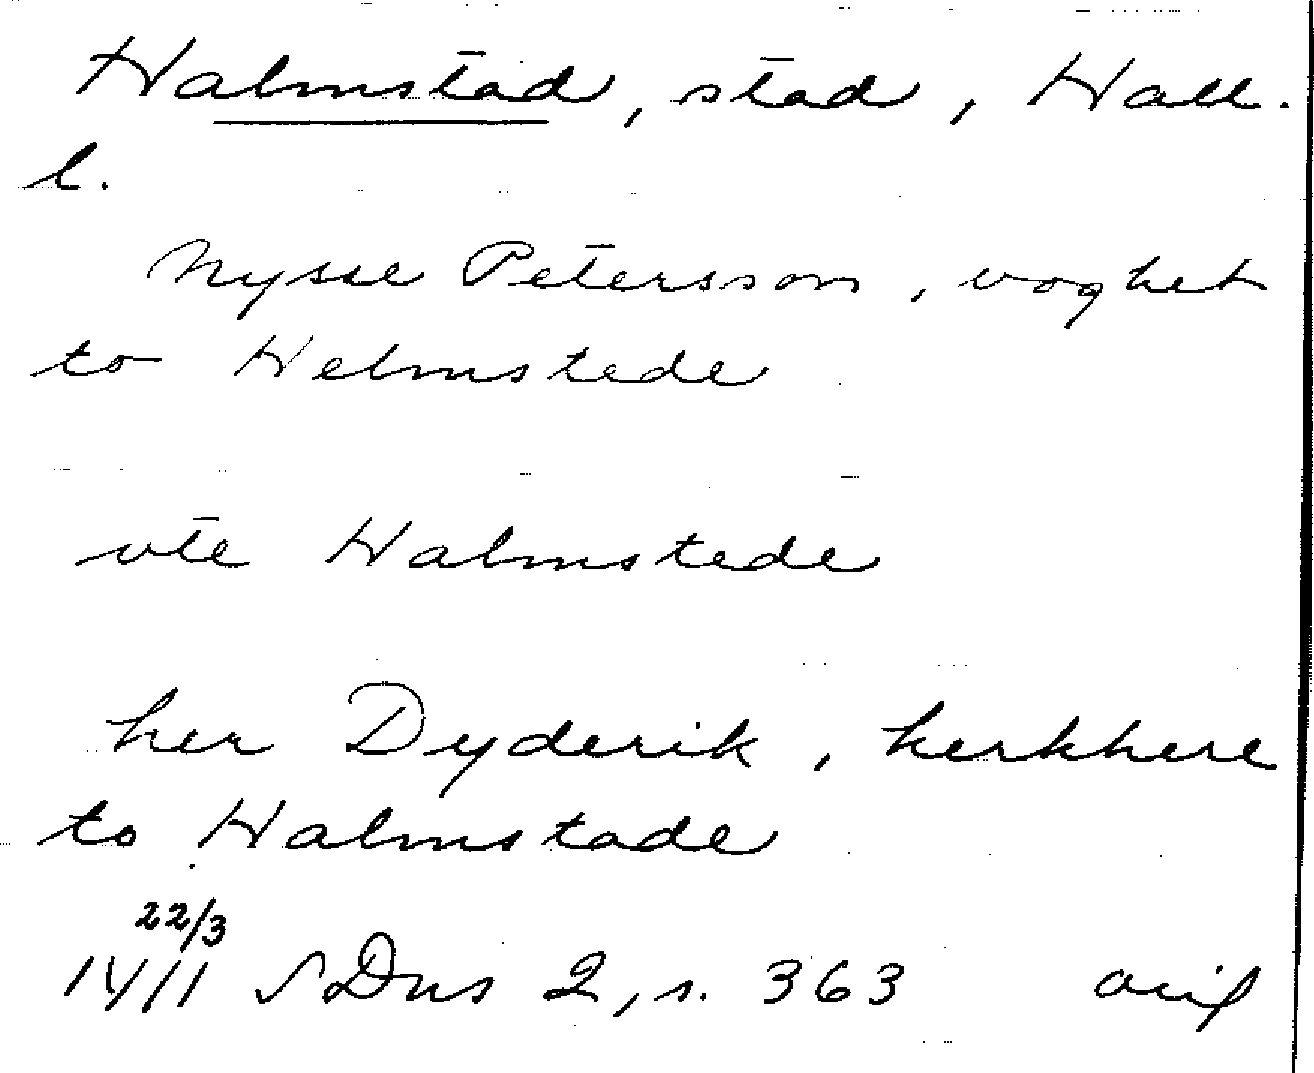 Halmstad, stad, Hall.
l.
Nysse Petersson, voghet
to Helmstede
vte Halmstede
her Dyderik, kerkhere
to Halmstade
22/3
1411 SDns 2, s. 363